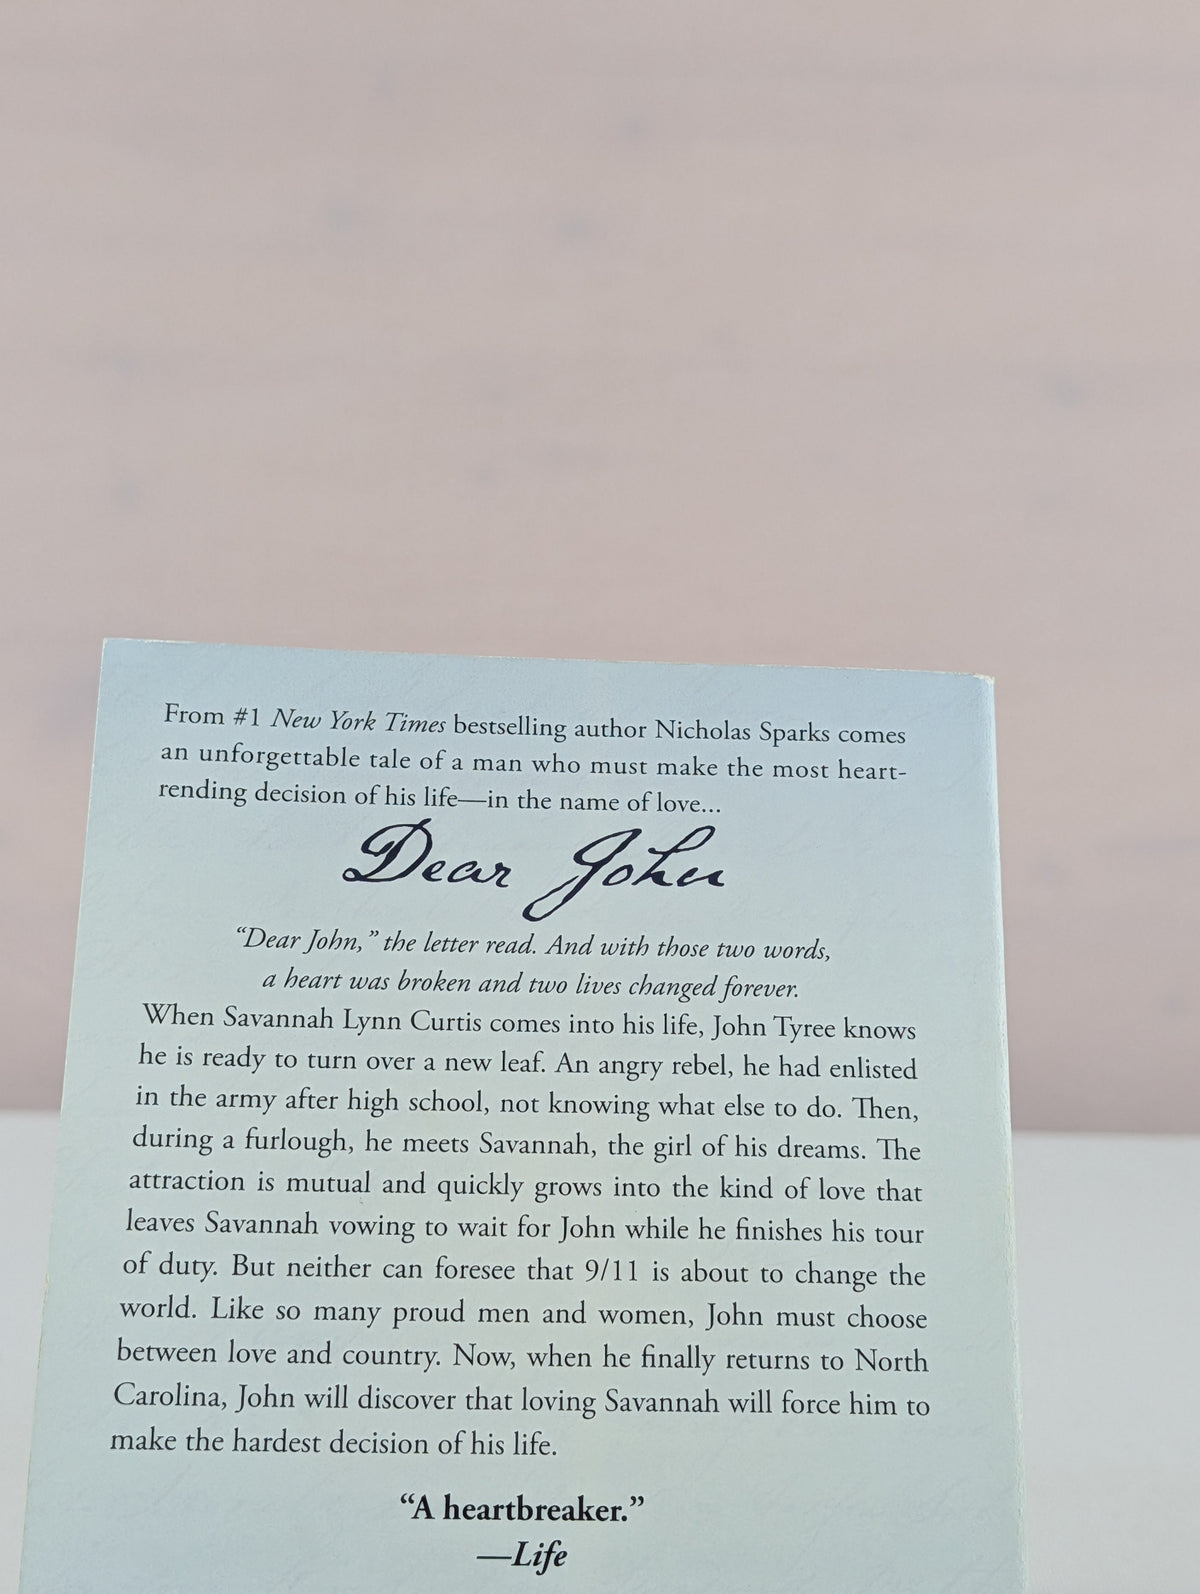 From #1 New York Times bestselling author Nicholas Sparks comes
an unforgettable tale of a man who must make the most heart-
rending decision of his life—in the name of love...
Dear John
“Dear John,” the letter read. And with those two words,
a heart was broken and two lives changed forever.
When Savannah Lynn Curtis comes into his life, John Tyree knows
he is ready to turn over a new leaf. An angry rebel, he had enlisted
in the army after high school, not knowing what else to do. Then,
during a furlough, he meets Savannah, the girl of his dreams. The
attraction is mutual and quickly grows into the kind of love that
leaves Savannah vowing to wait for John while he finishes his tour
of duty. But neither can foresee that 9/11 is about to change the
world. Like so many proud men and women, John must choose
between love and country. Now, when he finally returns to North
Carolina, John will discover that loving Savannah will force him to
make the hardest decision of his life.
“A heartbreaker.”
—Life